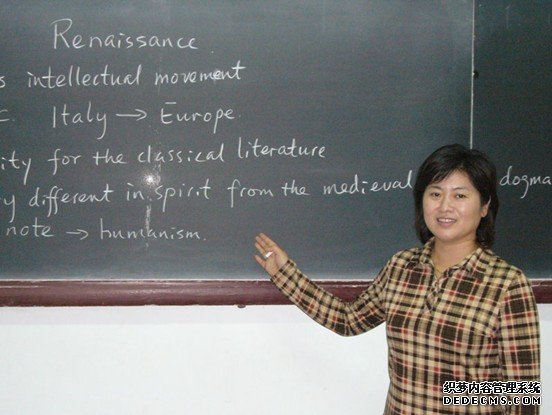 Renaissance
s intellectual movement
c. Italy → Europe.
ity for the classical literature
y different in spirit from the medieval dogma
note → humanism.
织梦内容管理系统
DEDECMS.COM